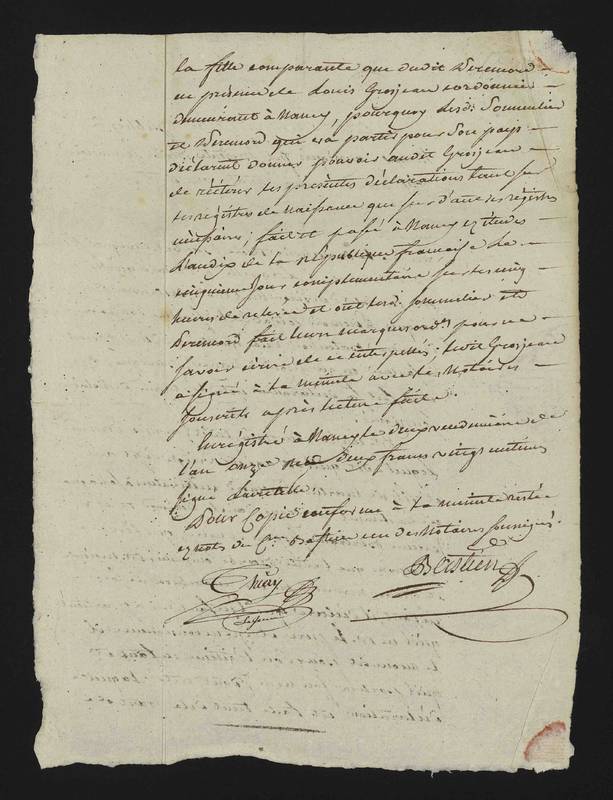 la fille comparante que dudit Deremord
en présence de Louis Grosjean cordonnier
demeurant à Nancy, pourquoy lesd. Sommelier
et Deremord qui va partir pour son pays
déclarent donner pouvoir audit Grosjean
de réitérer les présentes déclarations tant sur
les registres de naissance que sur d'autres registres
nécessaires; fait et passé à Nancy ez études
L'an dix de la République française le
cinquieme Jour complementaire sur les cinq
heures de relevée et ont lesd. Sommelier et
Deremord fait leurs marques ord.res pour ne
savoir écrire de ce interpellés; ledit Grosjean
a signé à la minute avec les Notaires
soussignés après lecture faite.
Enregistré à Nancy le deux vendemiaire de
l'an onze reçu deux francs vingt centimes
signé
Pour Copie conforme à la minute restée
ez nots du C.en Bastien un des Notaires soussignés.
Bastien